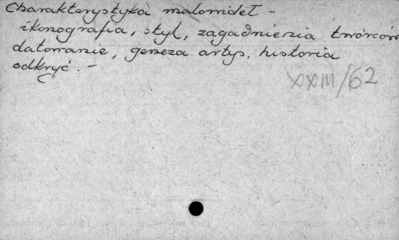 Charakterystyka malowideł -
ikonografia, styl, zagadnienia twórców
datowanie, geneza artys. historia
odkryć. -
XXIII/62